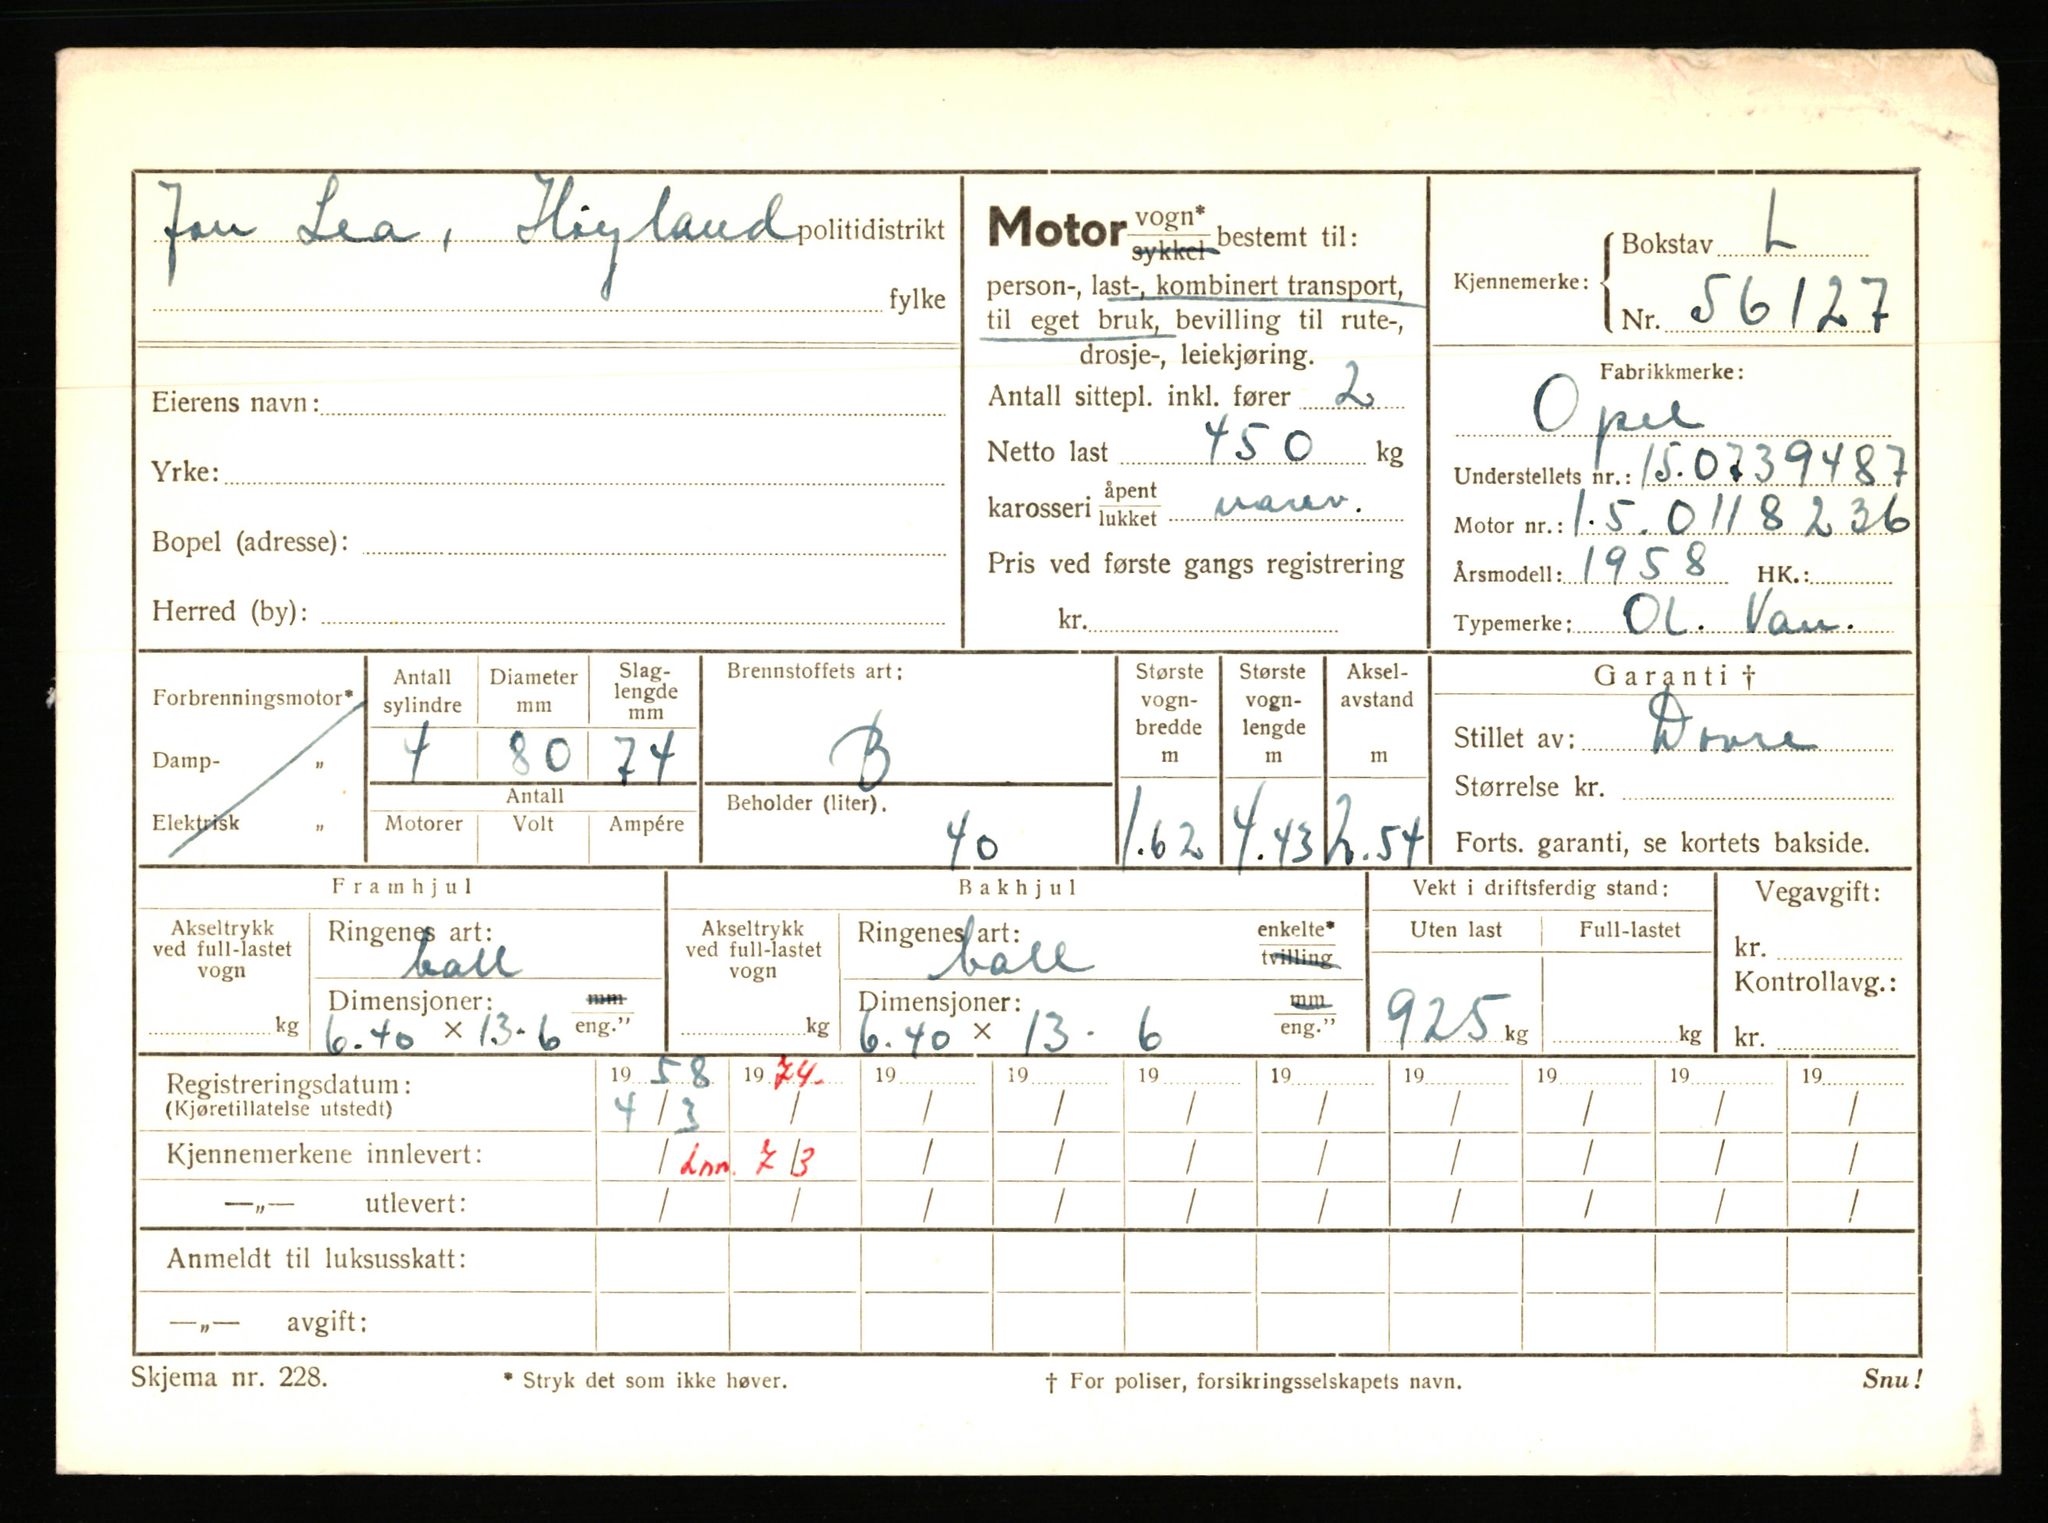 Jon Lea, Høyland politidistrikt
fylke
Eierens navn:
Yrke:
Bopel (adresse):
Herred (by):
Motor vogn* sykkel bestemt til:
person-, last-, kombinert transport,
til eget bruk, bevilling til rute-,
drosje-, leiekjøring.
Antall sittepl. inkl. fører 2
Netto last 450 kg
karosseri åpent lukket varev.
Pris ved første gangs registrering
kr.
Kjennemerke: Bokstav L
Nr. 56127
Fabrikkmerke:
Opel
Understellets nr.: 15.0739487
Motor nr.: 1.5.0118236
Årsmodell: 1958 HK.:
Typemerke: OL. Van.
Forbrenningsmotor*
Damp- „
Elektrisk „
Antall sylindre Diameter mm Slag-lengde mm
4 80 74
Antall
Motorer Volt Ampére
Brennstoffets art:
B
Beholder (liter).
40
Største vogn-bredde m
1.62
Største vogn-lengde m
4.43
Aksel-avstand m
2.54
Garanti †
Stillet av: Dovre
Størrelse kr.
Forts. garanti, se kortets bakside.
Framhjul
Akseltrykk ved full-lastet vogn
kg
Ringenes art:
ball
Dimensjoner: mm eng.”
6.40 × 13-6
Bakhjul
Akseltrykk ved full-lastet vogn
kg
Ringenes art: enkelte* tvilling
ball
Dimensjoner: mm eng.”
6.40 × 13-6
Vekt i driftsferdig stand:
Uten last Full-lastet
925 kg kg
Vegavgift:
kr.
Kontrollavg.:
kr.
Registreringsdatum: 19 58 19 74. 19 19 19 19 19 19 19 19
(Kjøretillatelse utstedt) 4/3 / / / / / / / / /
Kjennemerkene innlevert: / Inn. 7/3 / / / / / / / /
—„— utlevert: / / / / / / / / / /
Anmeldt til luksusskatt:
—„— avgift:
Skjema nr. 228. * Stryk det som ikke høver. † For poliser, forsikringsselskapets navn. Snu!